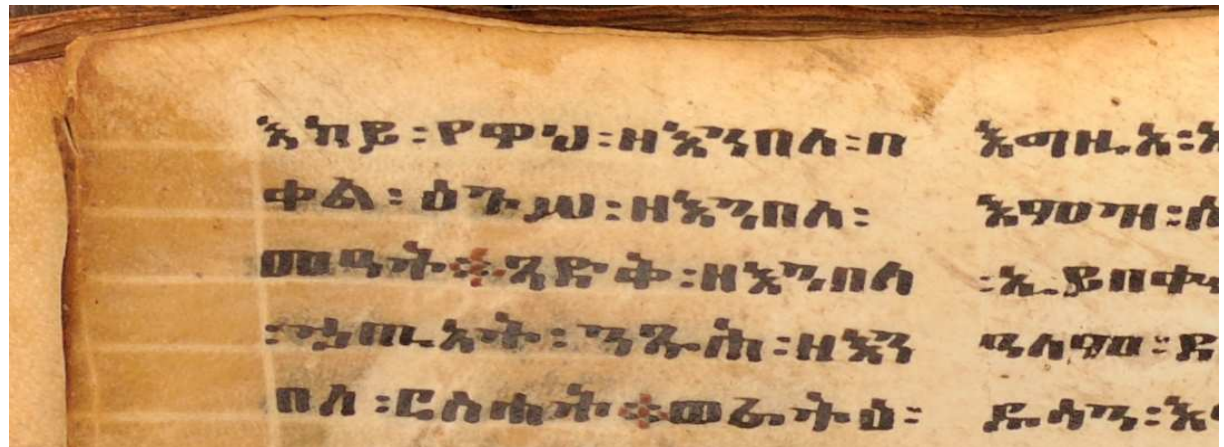 እከይ፡የዋህ፡ዘእንበለ፡በ
ቀል፡ዕጉሥ፡ዘእንበለ፡
መዓት፨ጻድቅ፡ዘእንበለ
፡ኃጢአት፡ንጹሕ፡ዘእን
በለ፡ርስሐት፨ወራትዕ፡
እግዚአ፡
፡ኢይበቀ
ዓለም፡
ዱሳን፡